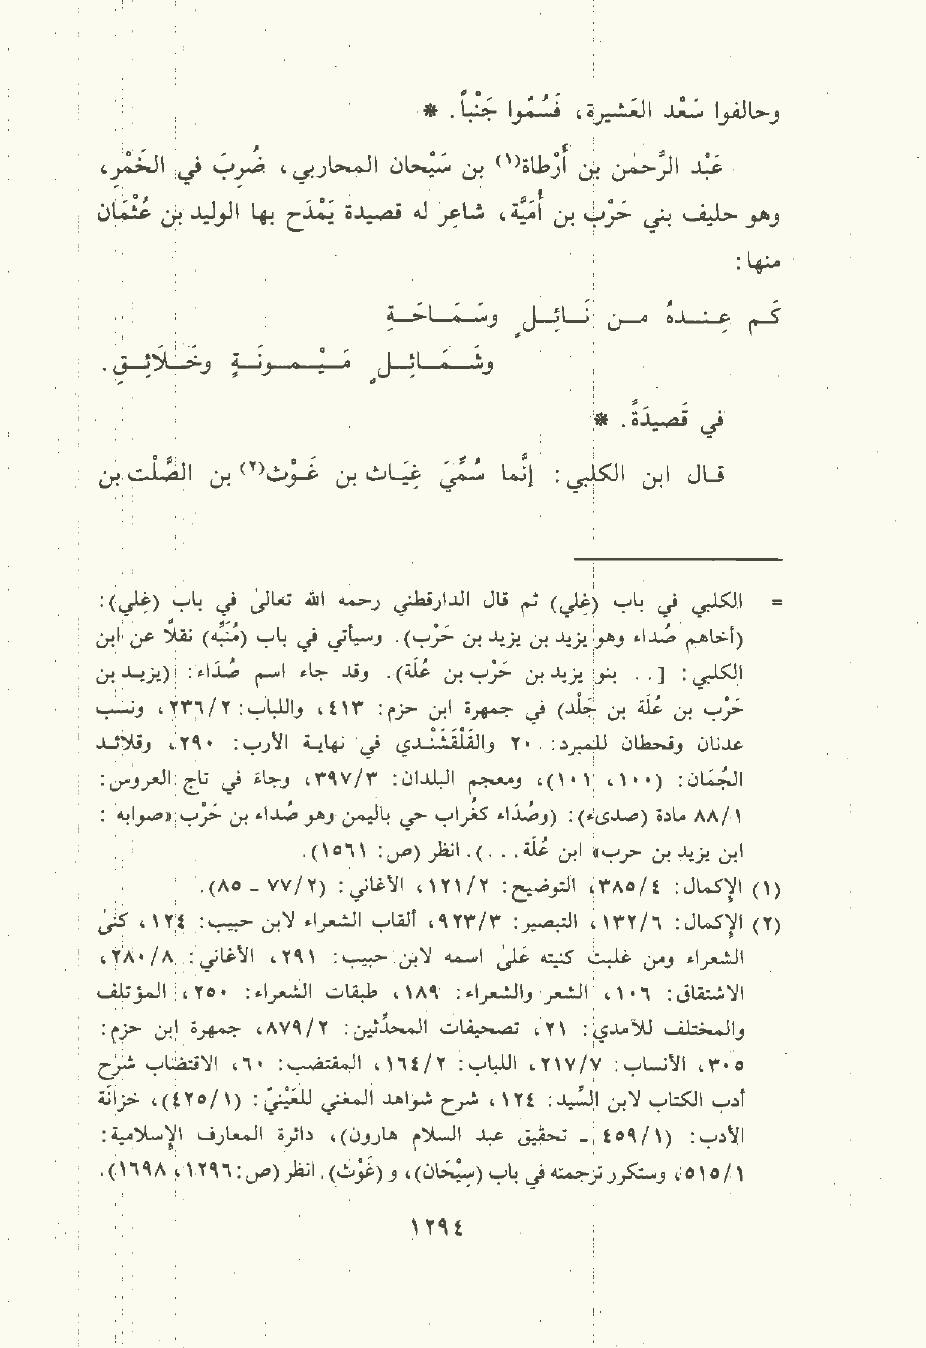 وحالفوا سَعْد العَشيرة، فَسُمّوا جَنْباً. *
عَبْد الرَّحمٰن بن أَرْطاة(١) بن سَيْحان المحاربي، ضُرِبَ في الخَمْر،
وهو حليف بني حَرْب بن أُمَيَّة، شاعر له قصيدة يَمْدَح بها الوليد بن عُثْمَان
منها:
كَم عِنـدهُ مـن نَـائِـلٍ وسَـمَـاحَـةِ
وشَـمَـائِـلٍ مَـيْـمـونَـةٍ وخَـلَائِـقِ.
في قَصيدَةً. *
قال ابن الكلبي: إنَّما سُمِّيَ غِيَاث بن غَوْث(٢) بن الصَّلْت بن
= الكلبي في باب (غِلي) ثم قال الدارقطني رحمه الله تعالىٰ في باب (غِلي):
(أخاهم صُداء وهو يزيد بن يزيد بن حَرْب). وسيأتي في باب (مُنَبِّه) نقلاً عن ابن
الكلبي: [.. وبنو يزيد بن حَرْب بن عُلَة). وقد جاء اسم صُدَاء: (يزيد بن
حَرْب بن عُلَة بن جَلْد) في جمهرة ابن حزم: ٤١٣، واللباب: ٢/٢٣٦، ونسب
عدنان وقحطان للمبرد: ٢٠ والقَلْقَشَنْدي في نهاية الأرب: ٢٩٠، وقلائد
الجُمَان: (١٠٠، ١٠١)، ومعجم البلدان: ٣/٣٩٧، وجاءَ في تاج العروس:
١/٨٨ مادة (صدىء): (وصُدَاء كغُراب حي باليمن وهو صُداء بن حَرْب «صوابه:
ابن يزيد بن حرب» ابن عُلَة...). انظر (ص: ١٥٦١).
(١) الإكمال: ٤/٣٨٥، التوضيح: ٢/١٢١، الأغاني: (٢/٧٧ - ٨٥).
(٢) الإكمال: ٦/١٣٢، التبصير: ٣/٩٢٣، ألقاب الشعراء لابن حبيب: ١٢٤، كنىٰ
الشعراء ومن غلبت كنيته علىٰ اسمه لابن حبيب: ٢٩١، الأغاني: ٨/٢٨٠،
الاشتقاق: ١٠٦، الشعر والشعراء: ١٨٩، طبقات الشعراء: ٢٥٠، المؤتلف
والمختلف للآمدي: ٢١، تصحيفات المحدِّثين: ٢/٨٧٩، جمهرة ابن حزم:
٣٠٥، الأنساب: ٧/٢١٧، اللباب: ٢/١٦٤، المقتضب: ٦٠، الاقتضاب شرح
أدب الكتاب لابن السِّيد: ١٢٤، شرح شواهد المغني للعَيْنيّ: (١/٤٢٥)، خزانَة
الأدب: (١/٤٥٩ - تحقيق عبد السلام هارون)، دائرة المعارف الإسلامية:
١/٥١٥، وستكرر ترجمته في باب (سِيْحَان)، و (غَوْث). انظر (ص: ١٢٩٦، ١٦٩٨).
١٢٩٤